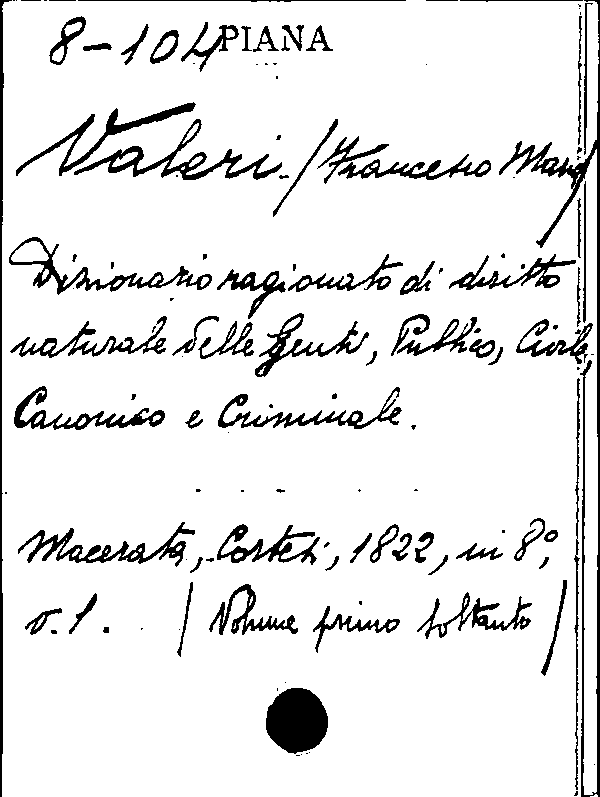 8-104 PIANA
Valeri. /Francesco Maria/
Dizionario ragionato di diritto
naturale delle Genti, Publico, Civile,
Canonico e Criminale.
Macerata, Cortesi, 1822, in 8º,
v. 1. / Volume primo soltanto /